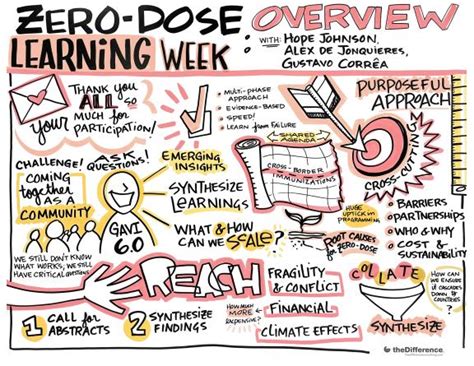 ZERO-DOSE OVERVIEW
LEARNING WEEK
WITH: HOPE JOHNSON,
ALEX DE JONQUIERES,
GUSTAVO CORRÊA
THANK YOU
ALL SO
MUCH FOR
YOUR PARTICIPATION!
MULTI-PHASE
APPROACH
EVIDENCE-BASED
SPEED!
LEARN FROM FAILURE
PURPOSEFUL
APPROACH
SHARED
AGENDA
CROSS-BORDER
IMMUNIZATIONS
CROSS-CUTTING
CHALLENGE!
ASK
QUESTIONS!
COMING
together
AS A
COMMUNITY
GAVI
6.0
EMERGING
INSIGHTS
SYNTHESIZE
LEARNINGS
WHAT & HOW
CAN WE SCALE?
HUGE
UPTICK IN
PROGRAMMING
ROOT CAUSES
FOR ZERO-DOSE
BARRIERS
PARTNERSHIPS
WHO & WHY
COST &
SUSTAINABILITY
WE STILL DON'T KNOW
WHAT WORKS; WE STILL
HAVE CRITICAL QUESTIONS
REACH
FRAGILITY
& CONFLICT
HOW MUCH
MORE
EXPENSIVE?
FINANCIAL
CLIMATE EFFECTS
COLLATE
SYNTHESIZE
HOW CAN
WE ENSURE
IT CASCADES
DOWN TO
COUNTRIES
1 CALL FOR
ABSTRACTS
2 SYNTHESIZE
FINDINGS
theDifference